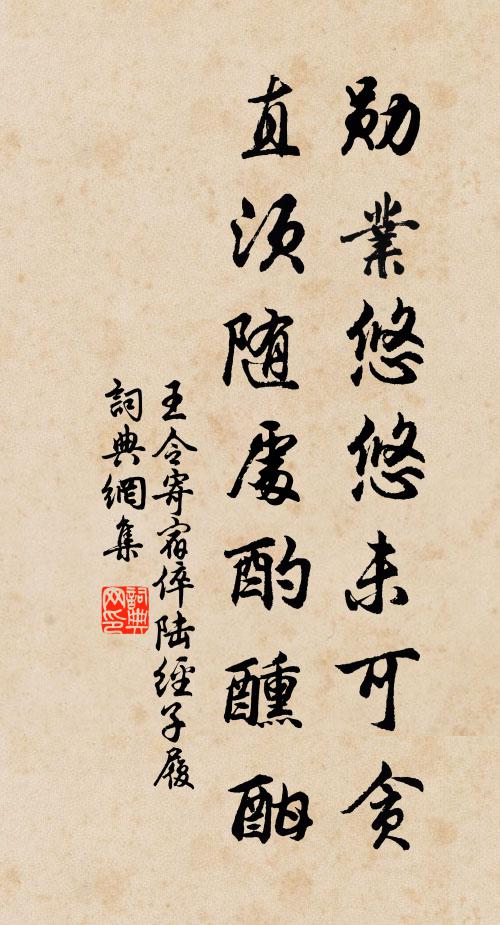 勛業悠悠未可貪
直須随處酌醺酣
王令寄宿倅陆經子履
詞典網集
詞典网印